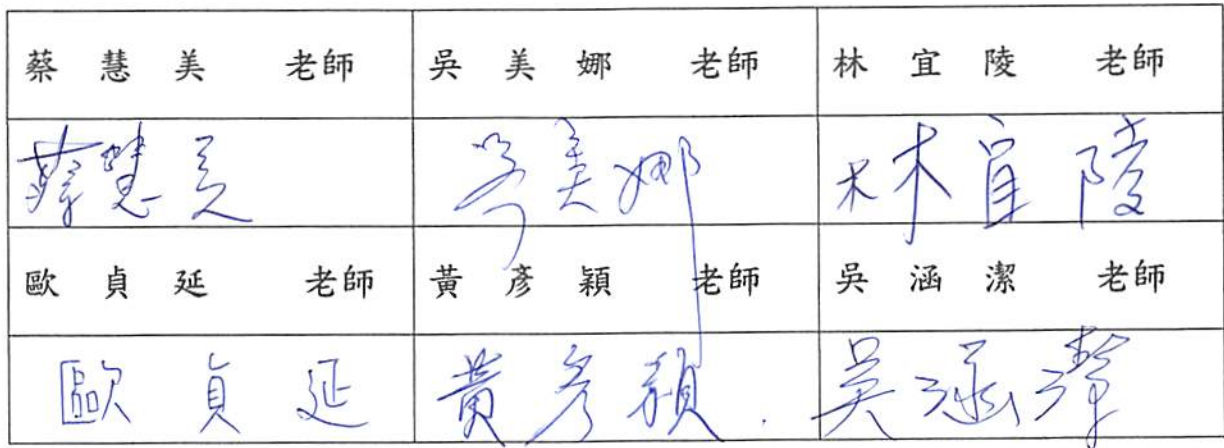 蔡 慧 美 老師 吳 美 娜 老師 林 宜 陵 老師
蔡慧美 吳美娜 林宜陵
歐 貞 延 老師 黃 彥 穎 老師 吳 涵 潔 老師
歐貞延 黃彥穎. 吳涵潔